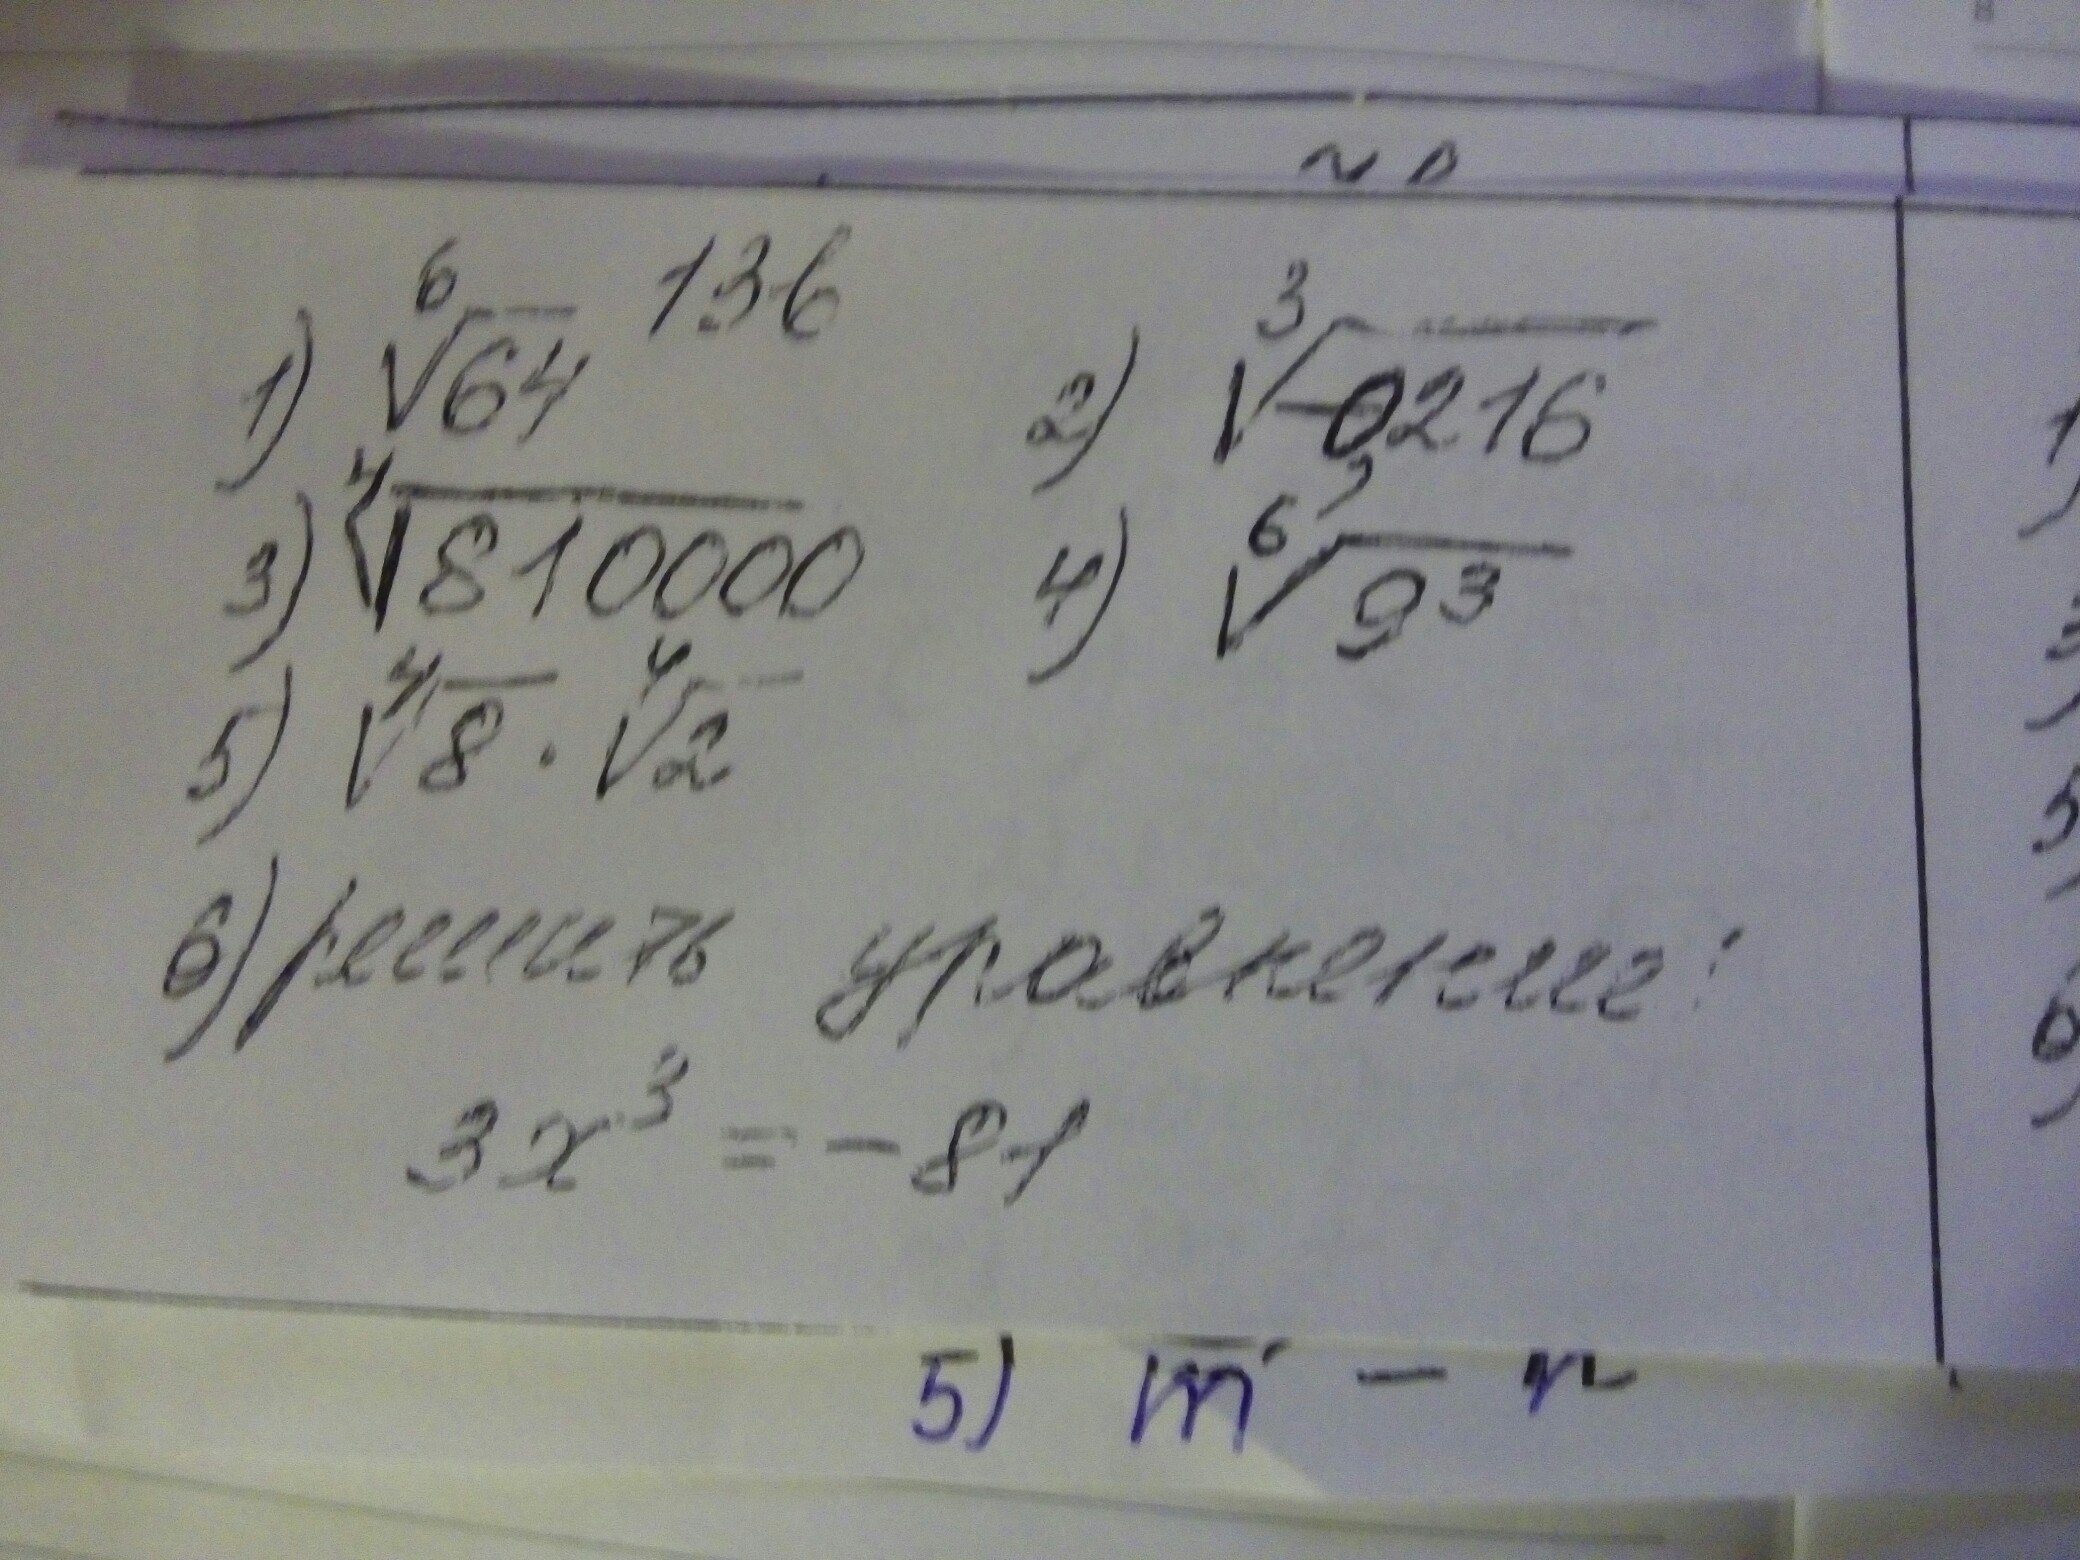 136
1) ⁶√64 2) ³√-0216
3) ⁴√810000 4) ⁶√9³
5) ⁴√8 · ⁴√2
6) решить уравнение:
3x³ = -81
5) m - n